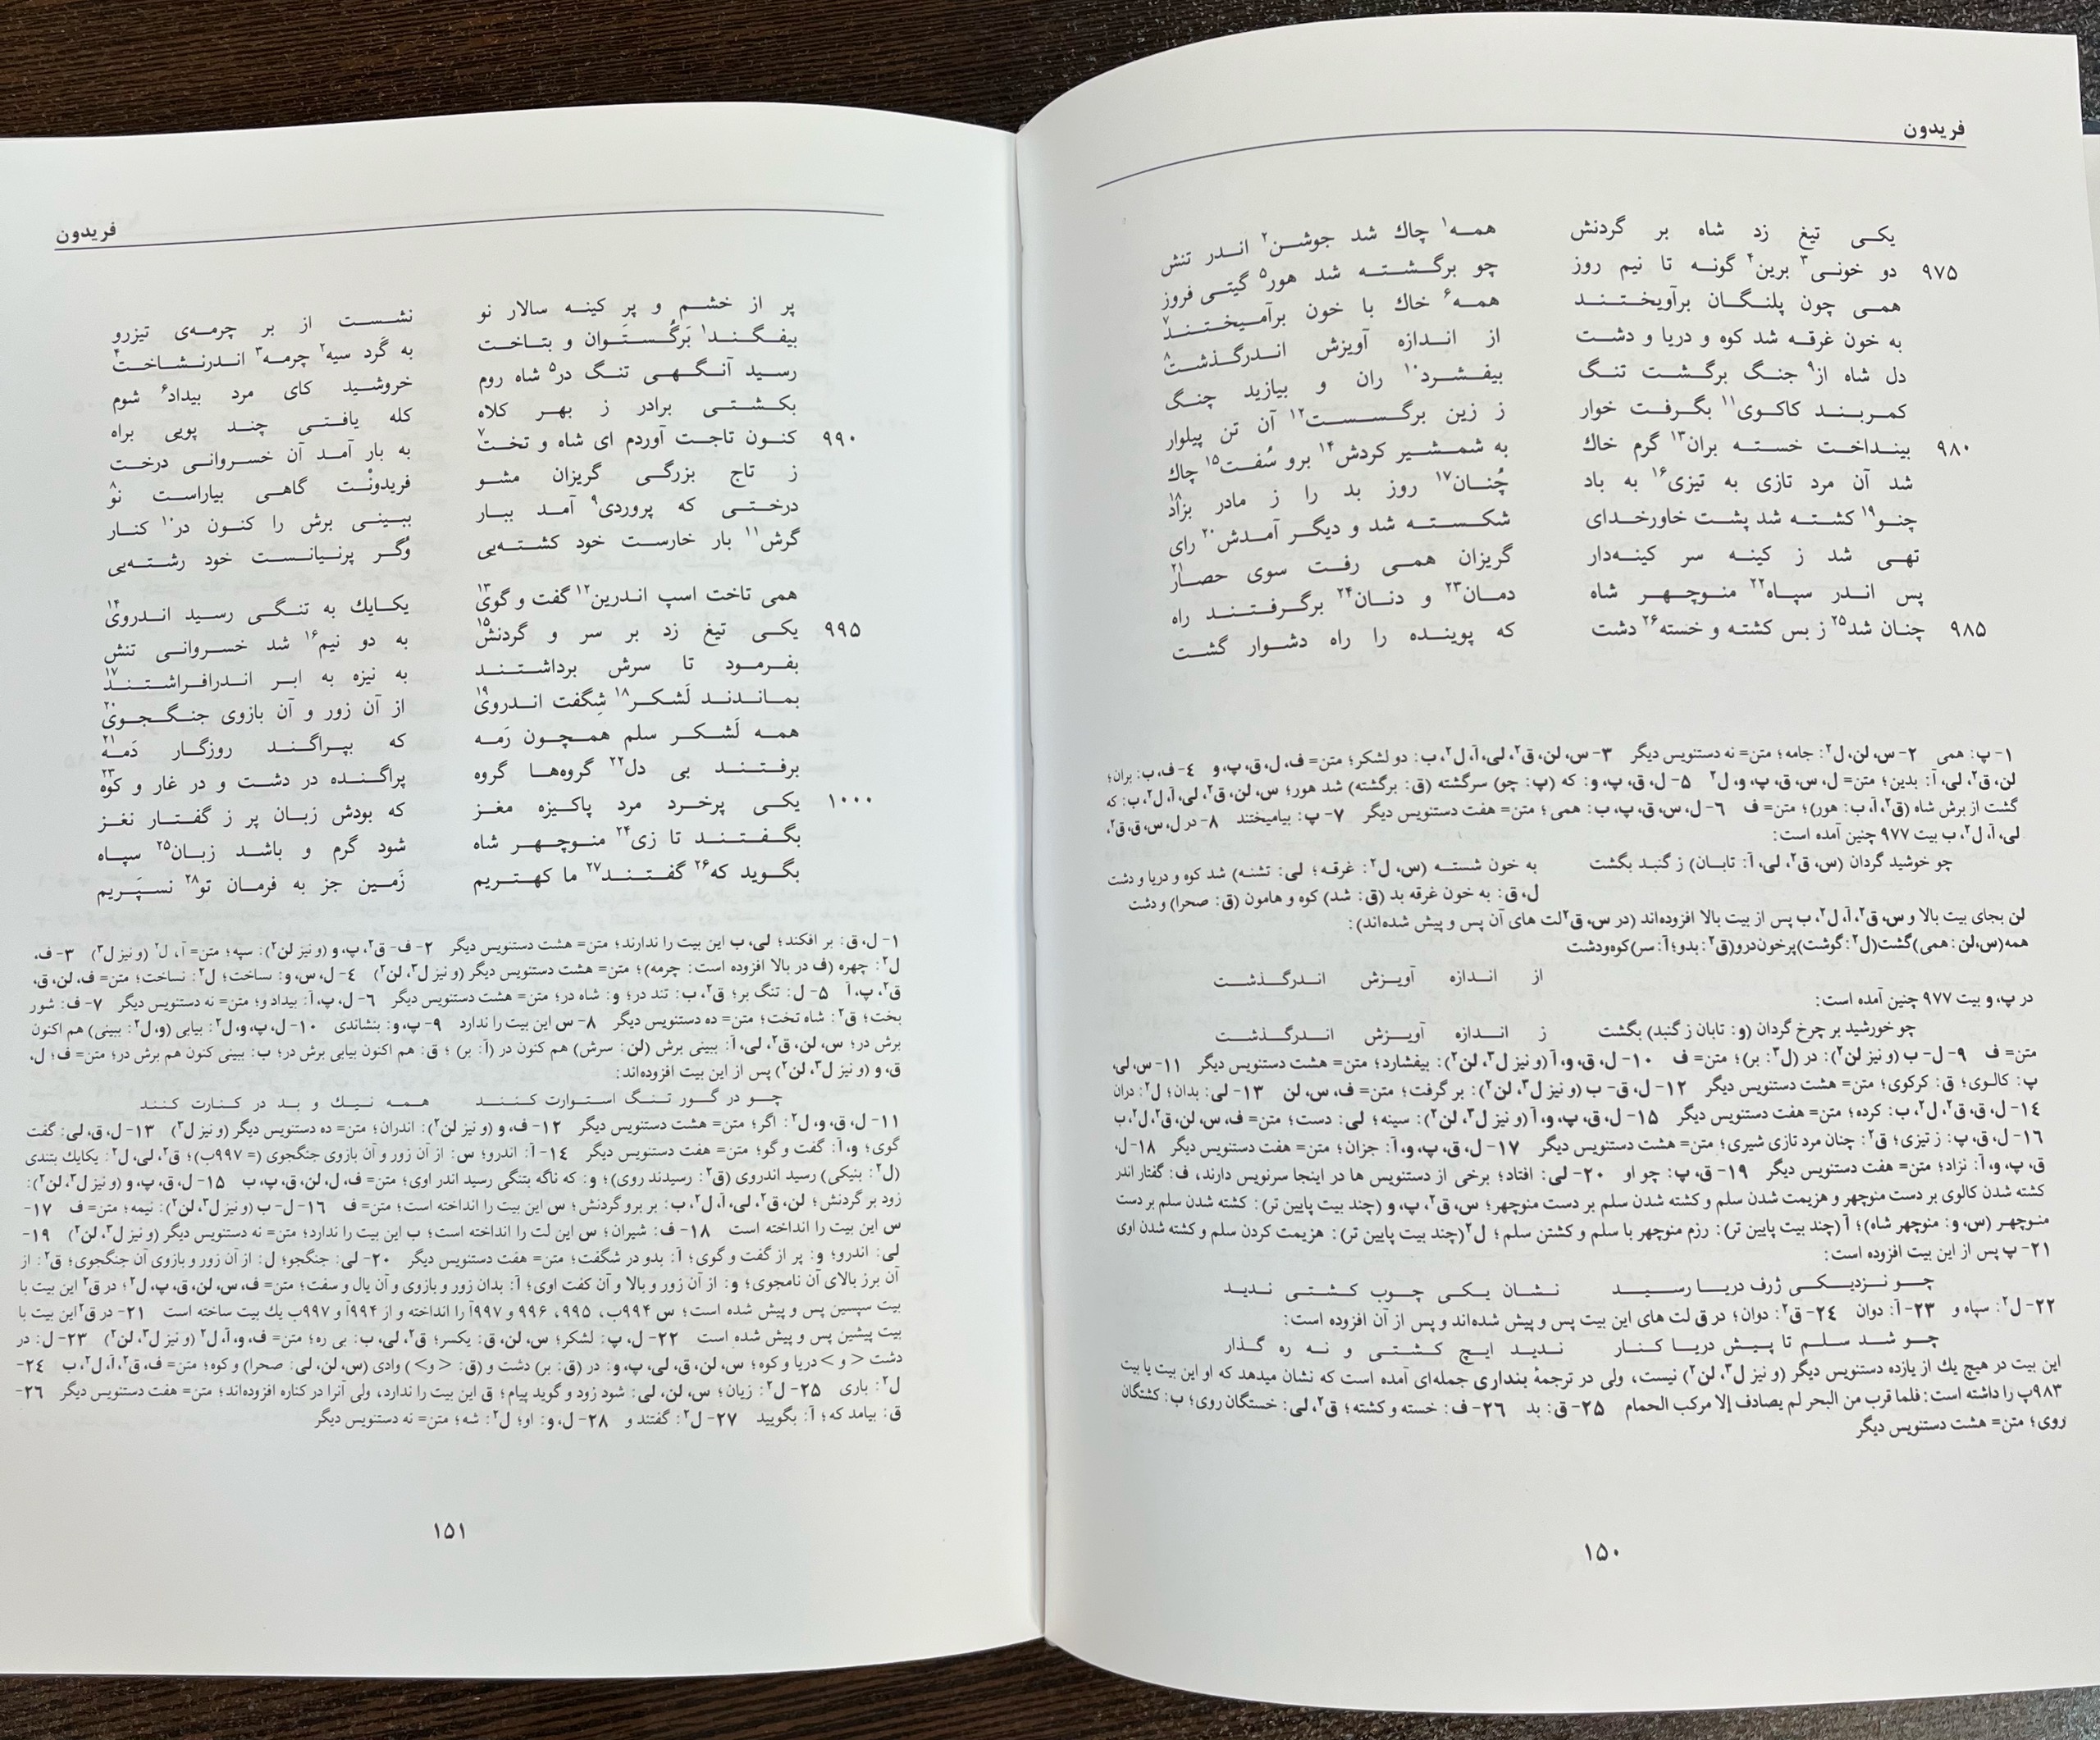 فریدون
یکی تیغ زد شاه بر گردنش همه۱ چاك شد جوشن۲ اندر تنش
۹۷۵ دو خونی۳ برین۴ گونه تا نیم روز چو برگشته شد هور۵ گیتی فروز
همی چون پلنگان برآویختند همه۶ خاك با خون برآمیختند۷
به خون غرقه شد کوه و دریا و دشت از اندازه آویزش اندرگذشت۸
دل شاه از۹ جنگ برگشت تنگ بیفشرد۱۰ ران و بیازید چنگ
کمربند کاکوی۱۱ بگرفت خوار ز زین برگسست۱۲ آن تن پیلوار
۹۸۰ بینداخت خسته بران۱۳ گرم خاك به شمشیر کردش۱۴ برو سُفت۱۵ چاك
شد آن مرد تازی به تیزی۱۶ به باد چُنان۱۷ روز بد را ز مادر بزاد۱۸
چنو۱۹ کشته شد پشت خاورخدای شکسته شد و دیگر آمدش۲۰ رای
تهی شد ز کینه سر کینه‌دار گریزان همی رفت سوی حصار۲۱
پس اندر سپاه۲۲ منوچهر شاه دمان۲۳ و دنان۲۴ برگرفتند راه
۹۸۵ چنان شد۲۵ ز بس کشته و خسته۲۶ دشت که پوینده را راه دشوار گشت
۱- پ: همی ۲- س، لن، ل۲: جامه؛ متن= نه دستنویس دیگر ۳- س، لن، ق۲، لی، آ، ل۲، ب: دو لشکر؛ متن= ف، ل، ق، پ، و ۴- ف، ب: بران؛
لن، ق۲، لی، آ: بدین؛ متن= ل، س، ق، پ، و، ل۲ ۵- ل، ق، پ، و: که (پ: چو) سرگشته (ق: برگشته) شد هور؛ س، لن، ق۲، لی، آ، ل۲، ب: که
گشت از برش شاه (ق۲، آ، ب: هور)؛ متن= ف ۶- ل، س، ق، پ، ب: همی؛ متن= هفت دستنویس دیگر ۷- پ: بیامیختند ۸- در ل، س، ق، ق۲،
لی، آ، ل۲، ب بیت ۹۷۷ چنین آمده است:
چو خوشید گردان (س، ق۲، لی، آ: تابان) ز گنبد بگشت به خون شسته (س، ل۲: غرقه؛ لی: تشنه) شد کوه و دریا و دشت
ل، ق: به خون غرقه بد (ق: شد) کوه و هامون (ق: صحرا) و دشت
لن بجای بیت بالا و س، ق۲، آ، ل۲، ب پس از بیت بالا افزوده‌اند (در س، ق۲ لت های آن پس و پیش شده‌اند):
همه (س، لن: همی) گشت (ل۲: گوشت) پرخون درو (ق۲: بدو؛ آ: سر) کوه و دشت
از اندازه آویزش اندرگذشت
در پ، و بیت ۹۷۷ چنین آمده است:
چو خورشید بر چرخ گردان (و: تابان ز گنبد) بگشت ز اندازه آویزش اندرگذشت
متن= ف ۹- ل- ب (و نیز لن۲): در (ل۳: بر)؛ متن= ف ۱۰- ل، ق، و، آ (و نیز ل۳، لن۲): بیفشارد؛ متن= هشت دستنویس دیگر ۱۱- س، لی،
پ: کالوی؛ ق: کرکوی؛ متن= هشت دستنویس دیگر ۱۲- ل، ق- ب (و نیز ل۳، لن۲): برگرفت؛ متن= ف، س، لن ۱۳- لی: بدان؛ ل۲: دران
۱۴- ل، ق، ق۲، ل۲، ب: کرده؛ متن= هفت دستنویس دیگر ۱۵- ل، ق، پ، و، آ (و نیز ل۳، لن۲): سینه؛ لی: دست؛ متن= ف، س، لن، ق۲، ل۲، ب
۱۶- ل، ق، پ: ز تیزی؛ ق۲: چنان مرد تازی شیری؛ متن= هشت دستنویس دیگر ۱۷- ل، ق، پ، و، آ: جزان؛ متن= هفت دستنویس دیگر ۱۸- ل،
ق، پ، و، آ: نزاد؛ متن= هفت دستنویس دیگر ۱۹- ق، پ: چو او ۲۰- لی: افتاد؛ برخی از دستنویس ها در اینجا سرنویس دارند، ف: گفتار اندر
کشته شدن کالوی بر دست منوچهر و هزیمت شدن سلم و کشته شدن سلم بر دست منوچهر؛ س، ق۲، پ، و (چند بیت پایین تر): کشته شدن سلم بر دست
منوچهر (س، و: منوچهر شاه)؛ آ (چند بیت پایین تر): رزم منوچهر با سلم و کشتن سلم؛ ل۲ (چند بیت پایین تر): هزیمت کردن سلم و کشته شدن اوی
۲۱- پ پس از این بیت افزوده است:
چو نزدیکی ژرف دریا رسید نشان یکی چوب کشتی ندید
۲۲- ل۲: سپاه و ۲۳- آ: دوان ۲۴- ق۲: دوان؛ در ق لت های این بیت پس و پیش شده‌اند و پس از آن افزوده است:
چو شد سلم تا پیش دریا کنار ندید ایچ کشتی و نه ره گذار
این بیت در هیچ یك از یازده دستنویس دیگر (و نیز ل۳، لن۲) نیست، ولی در ترجمهٔ بنداری جمله‌ای آمده است که نشان میدهد که او این بیت یا بیت
۹۸۳پ را داشته است: فلما قرب من البحر لم یصادف إلا مرکب الحمام ۲۵- ق: بد ۲۶- ف: خسته و کشته؛ ق۲، لی: خستگان روی؛ ب: کشتگان
روی؛ متن= هشت دستنویس دیگر
۱۵۰
فریدون
پر از خشم و پر کینه سالار نو نشست از بر چرمه‌ی تیزرو
بیفگند۱ بَرگُستَوان و بتاخت به گَرد سیه۲ چرمه۳ اندرنشاخت۴
رسید آنگهی تنگ در۵ شاه روم خروشید کای مرد بیداد۶ شوم
بکشتی برادر ز بهر کلاه کله یافتی چند پویی براه
۹۹۰ کنون تاجت آوردم ای شاه و تخت۷ به بار آمد آن خسروانی درخت
ز تاج بزرگی گریزان مشو فریدونْت گاهی بیاراست نو۸
درختی که پروردی۹ آمد ببار ببینی برش را کنون در۱۰ کنار
گرش۱۱ بار خارست خود کشته‌یی وُگر پرنیانست خود رشته‌یی
همی تاخت اسپ اندرین۱۲ گفت و گوی۱۳ یکایك به تنگی رسید اندروی۱۴
۹۹۵ یکی تیغ زد بر سر و گردنش۱۵ به دو نیم۱۶ شد خسروانی تنش
بفرمود تا سرش برداشتند به نیزه به ابر اندرافراشتند۱۷
بماندند لَشکر۱۸ شِگفت اندروی۱۹ از آن زور و آن بازوی جنگجوی۲۰
همه لَشکر سلم همچون رَمه که بپراگند روزگار دَمه۲۱
برفتند بی دل۲۲ گروه‌ها گروه پراگنده در دشت و در غار و کوه۲۳
۱۰۰۰ یکی پرخرد مرد پاکیزه مغز که بودش زبان پر ز گفتار نغز
بگفتند تا زی۲۴ منوچهر شاه شود گرم و باشد زبان۲۵ سپاه
بگوید که۲۶ گفتند۲۷ ما کهتریم زَمین جز به فرمان تو۲۸ نسپَریم
۱- ل، ق: بر افکند؛ لی، ب این بیت را ندارند؛ متن= هشت دستنویس دیگر ۲- ف- ق۲، پ، و (و نیز لن۲): سپه؛ متن= آ، ل۲ (و نیز ل۳) ۳- ف،
ل۲: چهره (ف در بالا افزوده است: چرمه)؛ متن= هشت دستنویس دیگر (و نیز ل۳، لن۲) ۴- ل، س، و: ساخت؛ ل۲: نساخت؛ متن= ف، لن، ق،
ق۲، پ، آ ۵- ل: تنگ بر؛ ق۲، ب: تند در؛ و: شاه در؛ متن= هشت دستنویس دیگر ۶- ل، پ، آ: بیداد و؛ متن= نه دستنویس دیگر ۷- ف: شور
بخت؛ ق۲: شاه تخت؛ متن= ده دستنویس دیگر ۸- س این بیت را ندارد ۹- پ، و: بنشاندی ۱۰- ل، پ، و، ل۲: بیابی (و، ل۲: ببینی) هم اکنون
برش در؛ س، لن، ق۲، لی، آ: ببینی برش (لن: سرش) هم کنون در (آ: بر)؛ ق: هم اکنون بیابی برش در؛ ب: ببینی کنون هم برش در؛ متن= ف؛ ل،
ق، و (و نیز ل۳، لن۲) پس از این بیت افزوده‌اند:
چو در گور تنگ استوارت کنند همه نیك و بد در کنارت کنند
۱۱- ل، ق، و، ل۲: اگر؛ متن= هشت دستنویس دیگر ۱۲- ف، و (و نیز لن۲): اندران؛ متن= ده دستنویس دیگر (و نیز ل۳) ۱۳- ل، ق، لی: گفت
گوی؛ و، آ: گفت و گو؛ متن= هفت دستنویس دیگر ۱۴- آ: اندرو؛ س: از آن زور و آن بازوی جنگجوی (= ۹۹۷ب)؛ ق۲، لی، ل۲: یکایك بتندی
(ل۲: بنیکی) رسید اندروی (ق۲: رسیدند روی)؛ و: که ناگه بتنگی رسید اندر اوی؛ متن= ف، ل، لن، ق، پ، ب ۱۵- ل، ق، پ، و (و نیز ل۳، لن۲):
زود بر گردنش؛ لن، ق۲، لی، آ، ل۲، ب: بر برو گردنش؛ س این بیت را انداخته است؛ متن= ف ۱۶- ل- ب (و نیز ل۳، لن۲): نیمه؛ متن= ف ۱۷-
س این بیت را انداخته است ۱۸- ف: شیران؛ س این لت را انداخته است؛ ب این بیت را ندارد؛ متن= نه دستنویس دیگر (و نیز ل۳، لن۲) ۱۹-
لی: اندرو؛ و: پر از گفت و گوی؛ آ: بدو در شگفت؛ متن= هفت دستنویس دیگر ۲۰- لی: جنگجو؛ ل: از آن زور و بازوی آن جنگجوی؛ ق۲: از
آن برز بالای آن نامجوی؛ و: از آن زور و بالا و آن کفت اوی؛ آ: بدان زور و بازوی و آن یال و سفت؛ متن= ف، س، لن، ق، پ، ل۲؛ در ق۲ این بیت با
بیت سپسین پس و پیش شده است؛ س ۹۹۴ب، ۹۹۵، ۹۹۶ و ۹۹۷آ را انداخته و از ۹۹۴آ و ۹۹۷ب یك بیت ساخته است ۲۱- در ق۲ این بیت با
بیت پیشین پس و پیش شده است ۲۲- ل، پ: لشکر؛ س، لن، ق: یکسر؛ ق۲، لی، ب: بی ره؛ متن= ف، و، آ، ل۲ (و نیز ل۳، لن۲) ۲۳- ل: در
دشت < و > دریا و کوه؛ س، لن، ق، لی، پ، و: در (ق: بر) دشت و (ق: < و>) وادی (س، لن، لی: صحرا) و کوه؛ متن= ف، ق۲، آ، ل۲، ب ۲۴-
ل۲: باری ۲۵- ل۲: زیان؛ س، لن، لی: شود زود و گوید پیام؛ ق این بیت را ندارد، ولی آنرا در کناره افزوده‌اند؛ متن= هفت دستنویس دیگر ۲۶-
ق: بیامد که؛ آ: بگویید ۲۷- ل۲: گفتند و ۲۸- ل، و: او؛ ل۲: شه؛ متن= نه دستنویس دیگر
۱۵۱